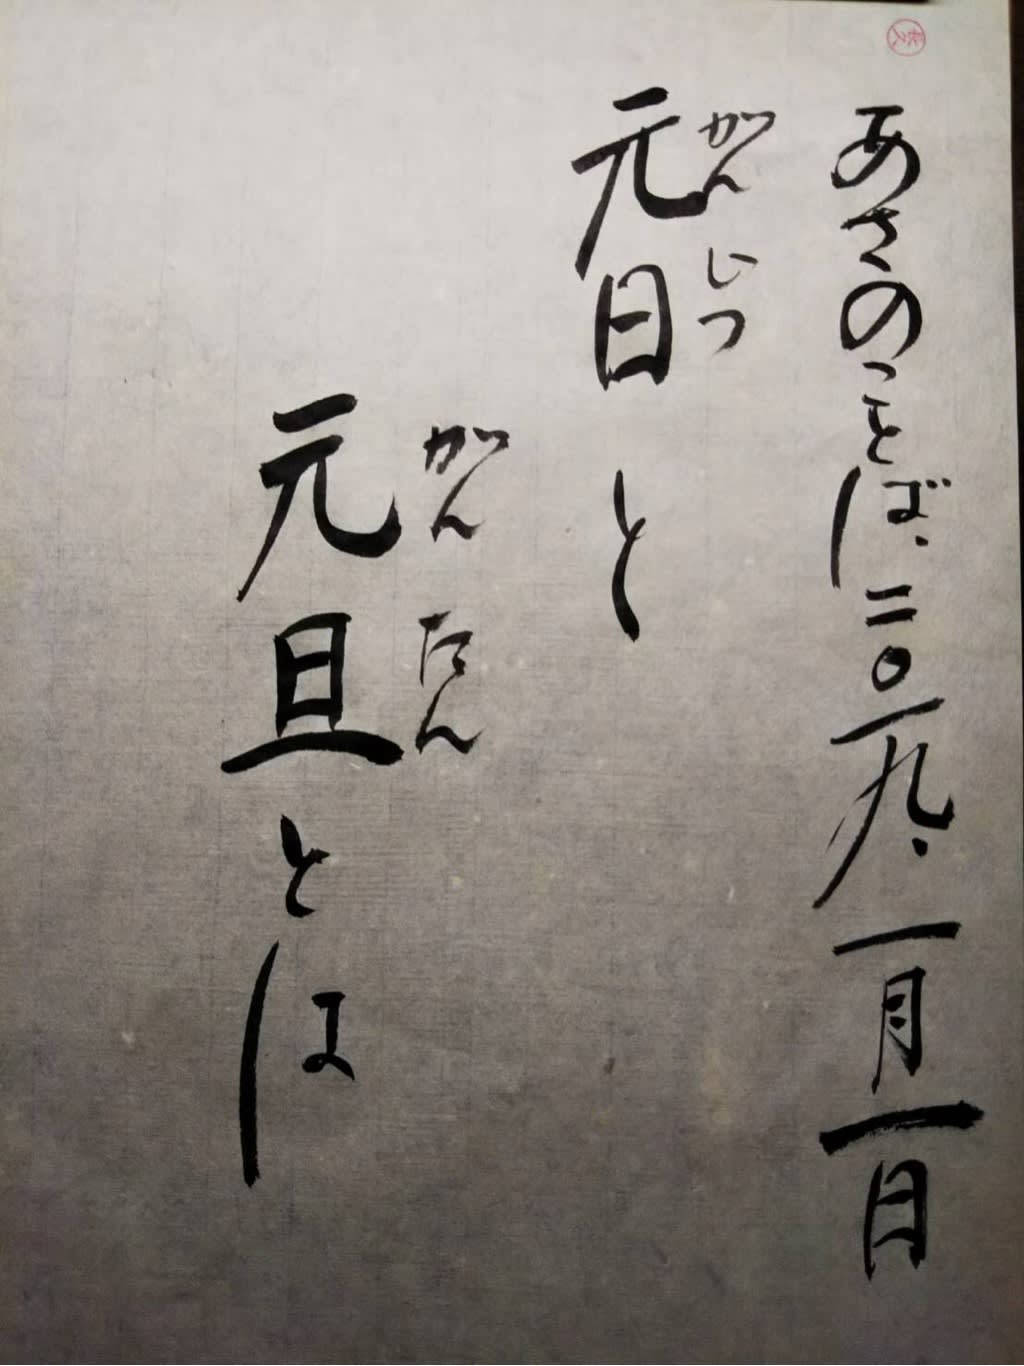 あさのことば、二〇一九、一月一日
がんじつ
元日と
がんたん
元旦とは